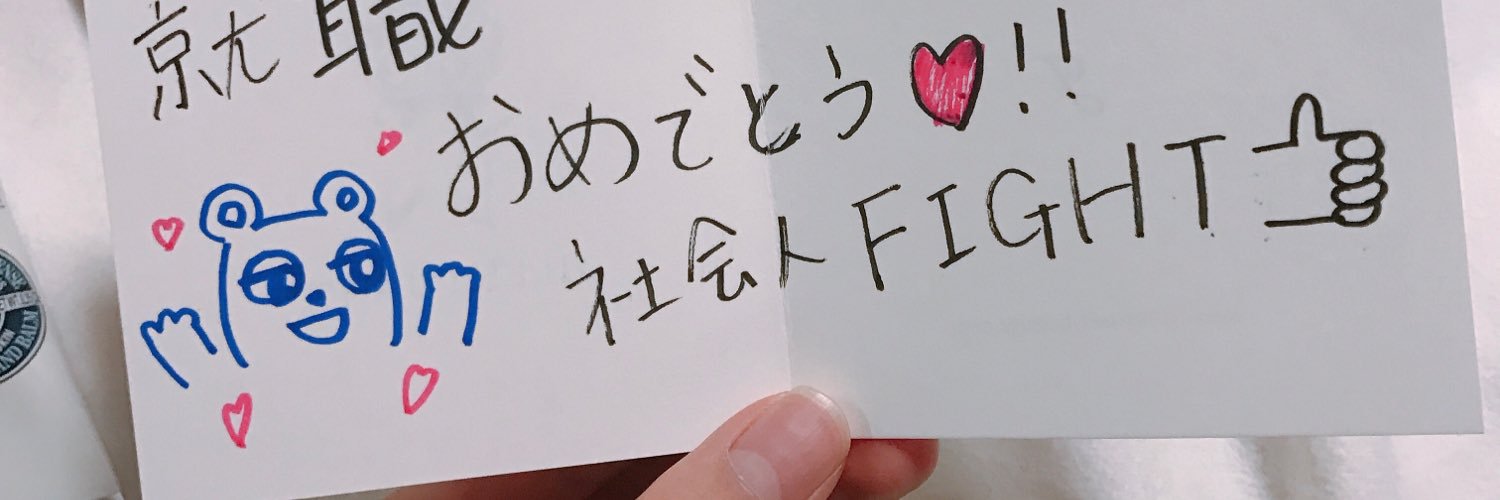 就職
おめでとう♥!!
社会人FIGHT
AND BALM